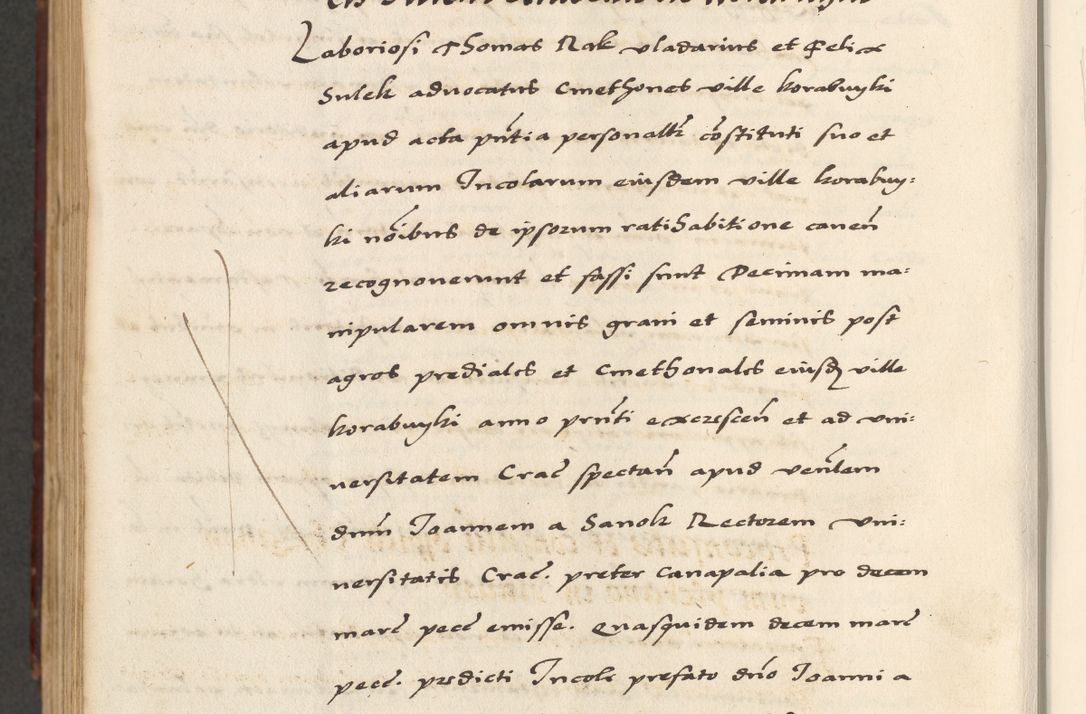 Laboriosi Thomas Rak vladarius et Felix
Sulek aduocatus Cmethones ville korabwyki
apud acta pñtia personaltr cõstituti suo et
aliarum Incolarum eiusdem ville korabwy:
ki nõibus de ipsorum ratihabitione caueñ
recognouerunt et fassi sunt Decimam ma:
nipularem omnis grani et seminis post
agros prediales et Cmethonales eiusd ville
korabwyki anno prñti excresceñ et ad vni:
uersitatem Crac spectañ apud veñlem
dnm Joannem a Sanok Rectorem vni:
uersitatis Crac. preter canapalia pro decem
marc pecc emisse. Quasquidem decem marc
pecc. predicti Incole prefato dño Joanni a